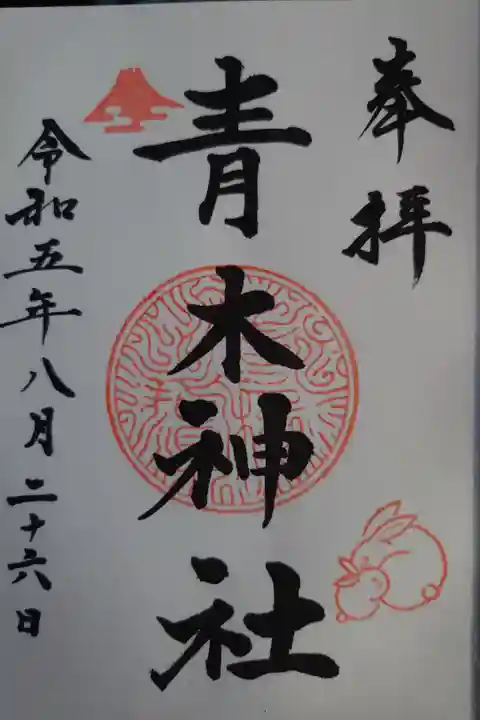 奉拝
青木神社
令和五年八月二十六日